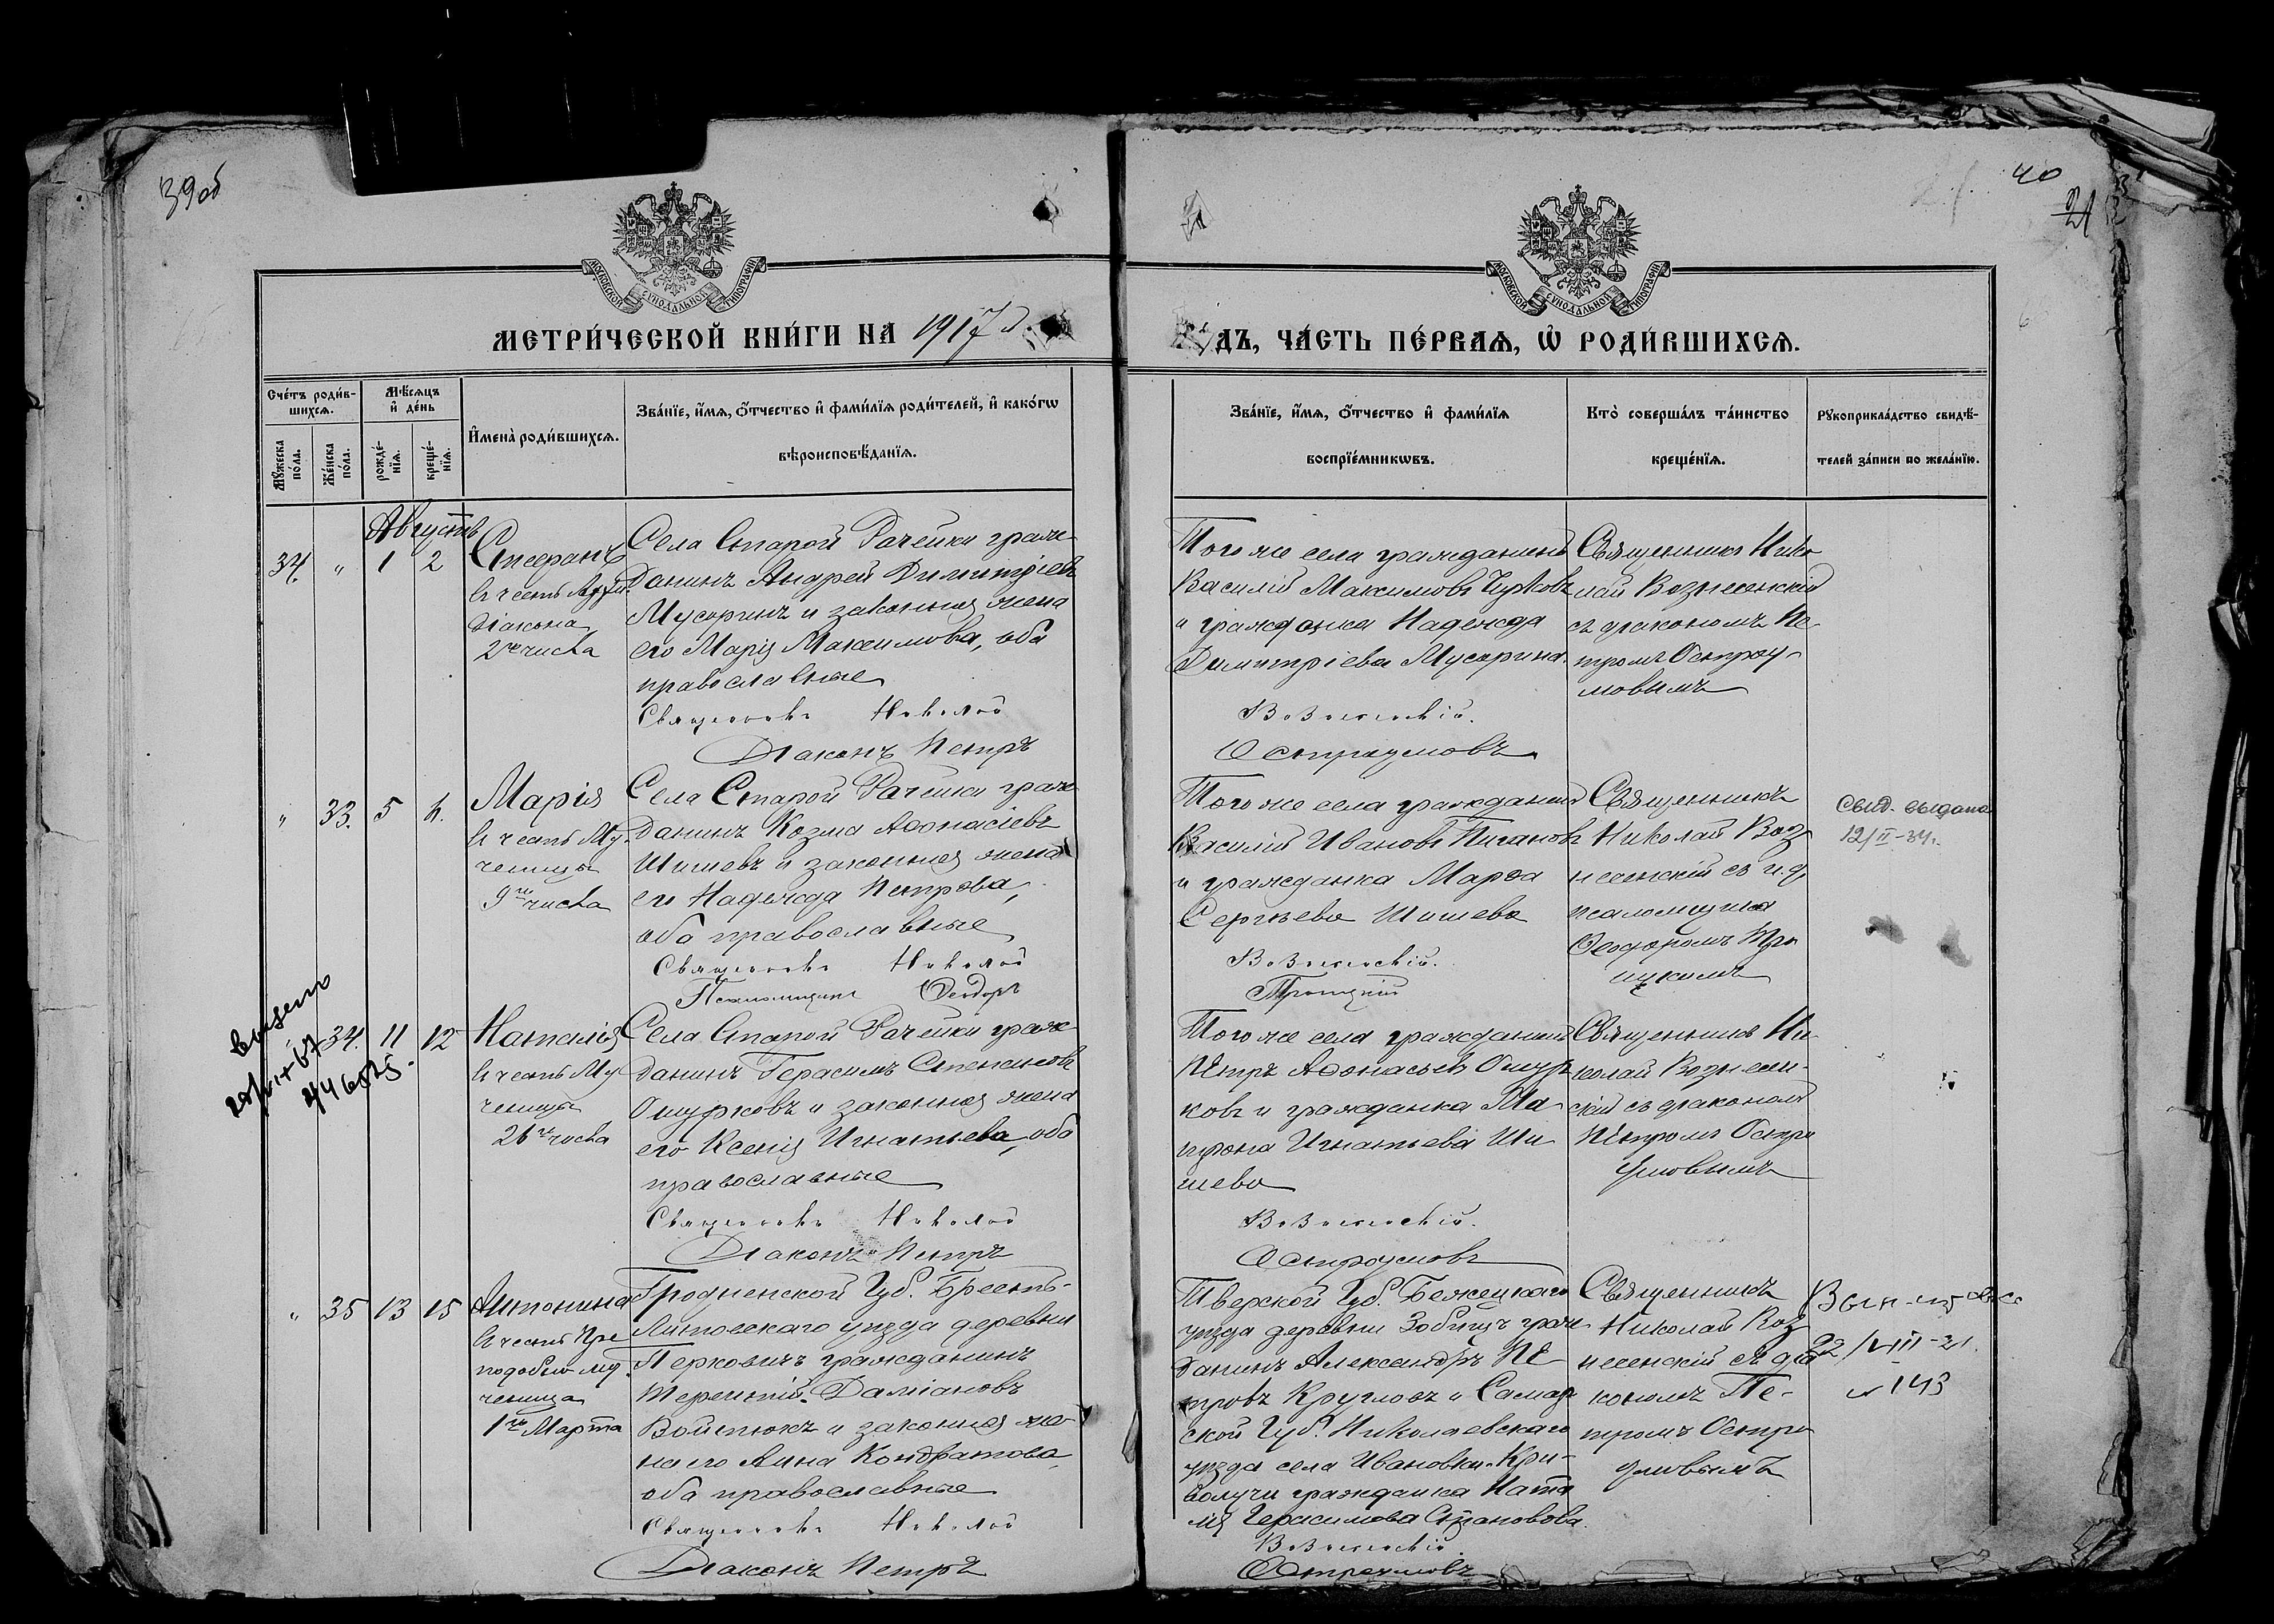 39об
40
21
МОСКОВСКОЙ СУНОДАЛЬНОЙ ТИПОГРАФІИ
МОСКОВСКОЙ СУНОДАЛЬНОЙ ТИПОГРАФІИ
МЕТРИ́ЧЕСКОЙ КНИ́ГИ НА 1917 г.
ДЪ, ЧА́СТЬ ПЕ́РВАѦ, Ѽ РОДИ́ВШИХСѦ.
Сче́тъ роди́в-
шихсѧ.
Мѣ́сѧцъ
и҆ де́нь
Мꙋ́жеска
по́ла.
Же́нска
по́ла.
рожде́-
нїѧ.
креще́-
нїѧ.
И҆мена̀ роди́вшихсѧ.
Зва́нїе, и҆́мѧ, ѻ҆́тчество и҆ фами́лїѧ роди́телей, и҆ како́гѡ
вѣроисповѣ́данїѧ.
Зва́нїе, и҆́мѧ, ѻ҆́тчество и҆ фами́лїѧ
воспрїе́мникѡвъ.
Кто̀ соверша́лъ та́инство
креще́нїѧ.
Рꙋкоприкла́дство свидѣ́-
телей за́писи по жела́нїю.
Августъ
34. " 1 2
Стефанъ
въ честь
діакона
2го числа
Села Старой Рачейки граж-
данинъ Андрей Димитріевъ
Мусоринъ и законная жена
его Марія Максимова, оба
православные
Священникъ Николай
Діаконъ Петръ
Того же села гражданинъ
Василій Максимовъ Чурковъ
и гражданка Надежда
Димитріева Мусорина.
Вознесенскій.
Остроумовъ
Священникъ Нико-
лай Вознесенскій
съ діакономъ Пе-
тромъ Остроу-
мовымъ
" 33. 5 6.
Марія
въ честь Му-
ченицы
9го числа
Села Старой Рачейки граж-
данинъ Козма Аѳонасіевъ
Шишевъ и законная жена
его Надежда Петрова,
оба православные
Священникъ Николай
Псаломщикъ Ѳеодоръ
Того же села гражданинъ
Василій Ивановъ Пичановъ
и гражданка Марѳа
Сергѣева Шишева
Вознесенскій.
Троицкій
Священникъ
Николай Воз-
несенскій съ и.д.
псаломщика
Ѳеодоромъ Тро-
ицкимъ
Свид. выдано
12/II-34г.
34. 11 12
Наталія
въ честь Му-
ченицы
26го числа
Села Старой Рачейки граж-
данинъ Герасимъ Степановъ
Ошурковъ и законная жена
его Ксенія Игнатьева, оба
православные
Священникъ Николай
Діаконъ Петръ
Того же села гражданинъ
Петръ Аѳонасьевъ Ошур-
ковъ и гражданка Ма-
трона Игнатьева Ши-
шева
Вознесенскій.
Остроумовъ
Священникъ Ни-
колай Вознесен-
скій съ діакономъ
Петромъ Остро-
умовымъ
" 35 13 15
Антонина
въ честь Пре-
подобно-му-
ченицы
1го Марта
Гродненской Губ. Брестъ-
Литовскаго уѣзда деревни
Перковичъ гражданинъ
Терентій Даміановъ
Войтюкъ и законная же-
на его Анна Кондратова,
оба православные
Священникъ Николай
Діаконъ Петръ
Тверской Губ. Бежецкаго
уѣзда деревни Зобищъ граж-
данинъ Александръ Пе-
тровъ Кругловъ и Самар-
ской Губ. Николаевскаго
уѣзда села Ивановки-Кри-
волучи гражданка Ната-
лія Герасимова
Вознесенскій
Остроумовъ
Священникъ
Николай Воз-
несенскій съ діа-
кономъ Пе-
тромъ Остро-
умовымъ
22/VIII-21.
№ 143